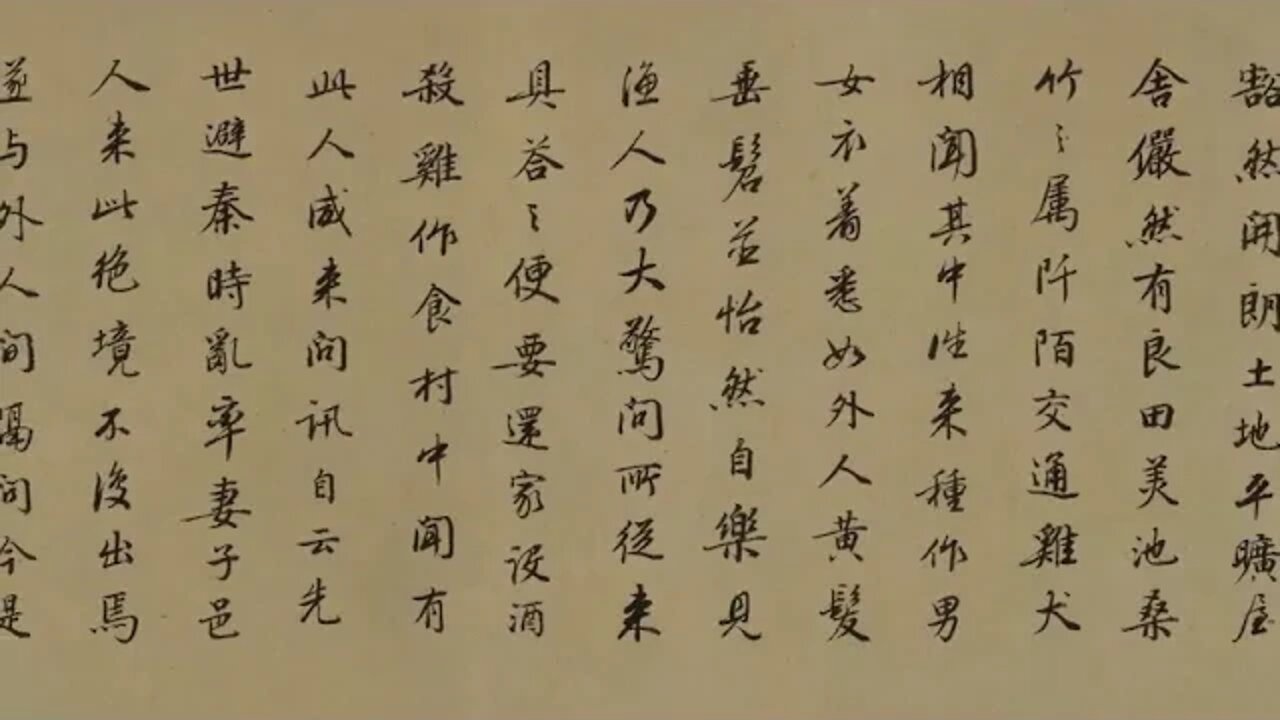 豁然開朗土地平曠屋
舍儼然有良田美池桑
竹〻属阡陌交通雞犬
相聞其中往来種作男
女衣着悉如外人黄髮
垂髫並怡然自樂見
漁人乃大驚問所從来
具答〻便要還家設酒
殺雞作食村中聞有
此人咸来問訊自云先
世避秦時亂率妻子邑
人来此絶境不復出焉
遂与外人间隔问今是